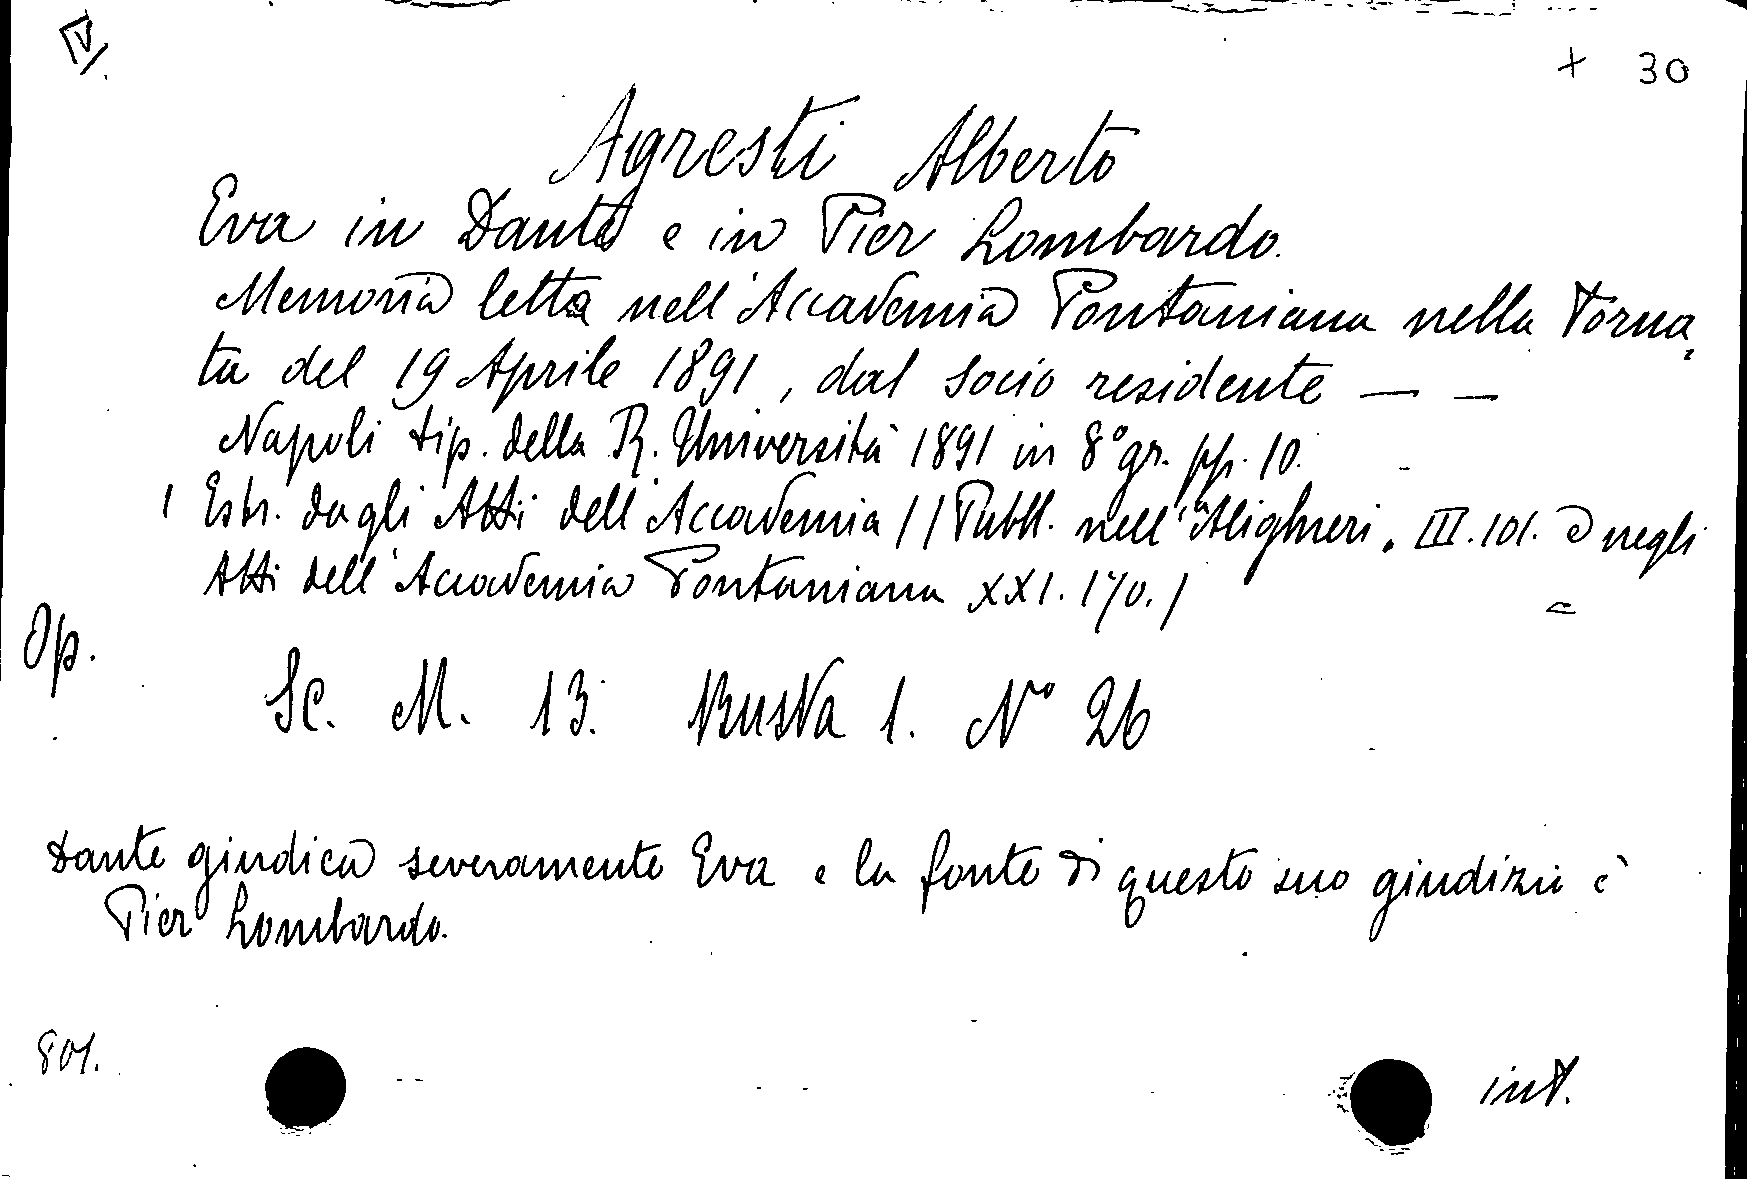 V
+ 30
Agresti Alberto
Eva in Dante e in Pier Lombardo.
Memoria letta nell'Accademia Pontaniana nella Torna,
ta del 19 Aprile 1891, dal socio residente — —
Napoli tip. della R. Università 1891 in 8° gr. pp. 10.
( Estr. dagli Atti dell'Accademia // Pubbl. nell'"Alighieri„ III. 101. e negli
Atti dell'Accademia Pontaniana XXI. 170. )
Op.
Sc. M. 13. Busta 1. N° 26
Dante giudica severamente Eva e la fonte di questo suo giudizio è
Pier Lombardo.
801.
int.